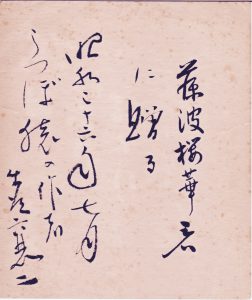 藤波桜華君
に贈る
昭和二十六年七月
うつぼ猿の作者